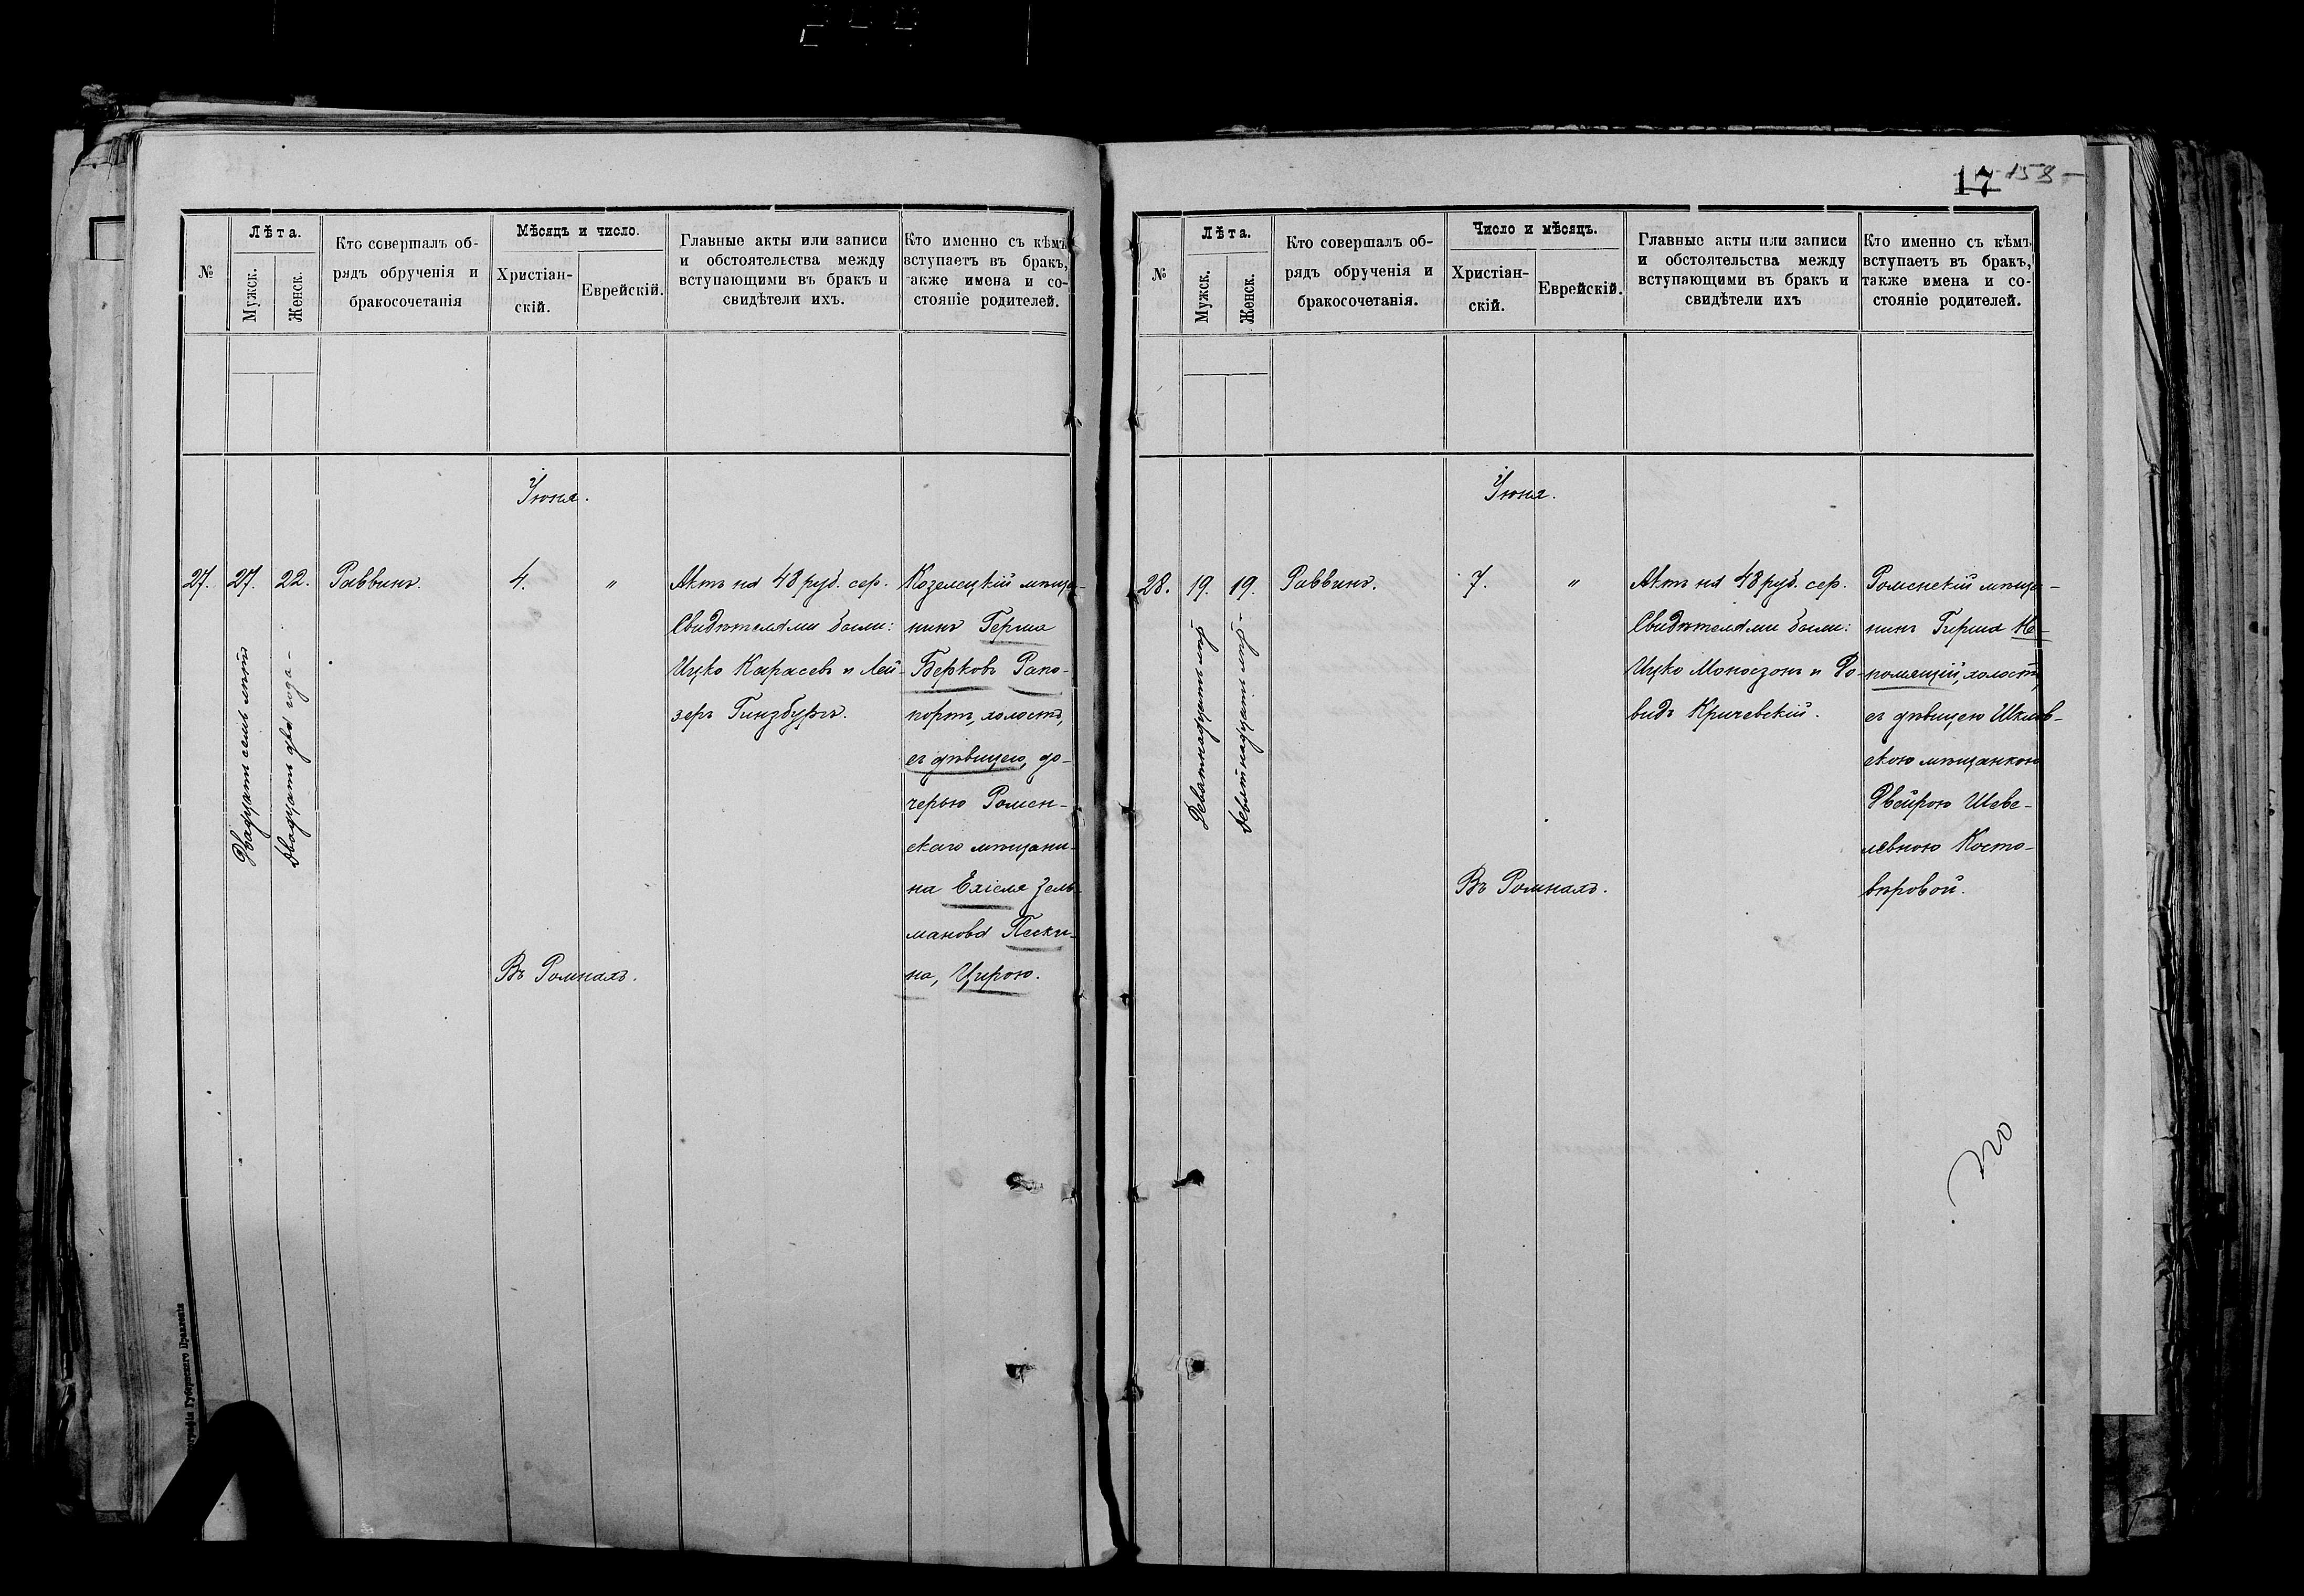 17 158
№
Лѣта.
Мужск.
Женск.
Кто совершалъ об-
рядъ обрученія и
бракосочетанія
Мѣсяцъ и число.
Христіан-
скій.
Еврейскій.
Главные акты или записи
и обстоятельства между
вступающими въ бракъ и
свидѣтели ихъ.
Кто именно съ кѣмъ
вступаетъ въ бракъ,
также имена и со-
стояніе родителей.
Іюня.
27. 27. 22. Раввинъ. 4. "
Двадцать семь лѣтъ
Двадцать два года-
Актъ на 48 руб. сер.
Свидѣтелями были:
Ицко Карасевъ и Лей-
зеръ Гинзбургъ.
Козелецкій мѣща-
нинъ Герша
Берковъ Рапо-
портъ, холостъ,
съ дѣвицею, до-
черью Ромен-
скаго мѣщани-
на Ехіеля Зель-
манова Пески-
на, Цирою.
Въ Ромнахъ.
графія Губернскаго Правленія
№
Лѣта.
Мужск.
Женск.
Кто совершалъ об-
рядъ обрученія и
бракосочетанія.
Число и мѣсяцъ.
Христіан-
скій.
Еврейскій.
Главные акты или записи
и обстоятельства между
вступающими въ бракъ и
свидѣтели ихъ
Кто именно съ кѣмъ
вступаетъ въ бракъ,
также имена и со-
стояніе родителей.
Іюня.
28. 19. 19. Раввинъ. 7. "
Девятнадцать лѣтъ
Девятнадцать лѣтъ-
Актъ на 48 руб. сер.
Свидѣтелями были:
Ицко Моносзонъ и До-
видъ Кричевскій.
Роменскій мѣща-
нинъ Гирша Не-
помящій, холостъ,
съ дѣвицею Шклов-
скою мѣщанкою
Двейрою Шеве-
левною Косто-
вѣровой.
Въ Ромнахъ.